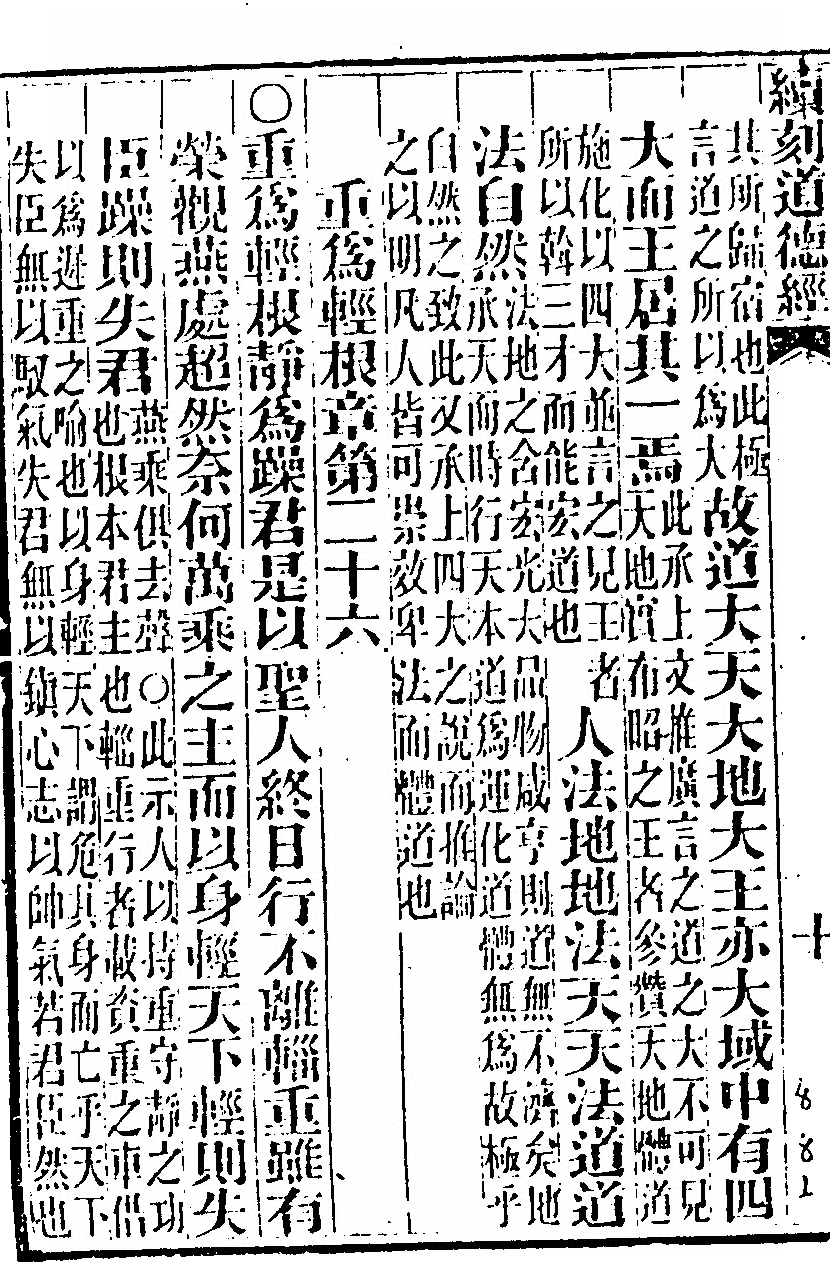 續刻道德經
十
882
其所歸宿也此極
言道之所以爲大
故道大天大地大王亦大域中有四
大而王居其一焉
此承上文推廣言之道之大不可見
天地實布昭之王者參贊天地體道
施化以四大並言之見王者
所以斡三才而能宏道也
人法地地法天天法道道
法自然
法地之含宏光大品物咸亨則道無不濟矣地
承天而時行天本道爲運化道體無爲故極乎
自然之致此又承上四大之說而推論
之以明凡人皆可崇效卑法而體道也
重爲輕根章第二十六
○重爲輕根靜爲躁君是以聖人終日行不離輜重雖有
榮觀燕處超然奈何萬乘之主而以身輕天下輕則失
臣躁則失君
燕乘俱去聲○此示人以持重守靜之功
也根本君主也輜重行者載資重之車借
以爲遲重之喻也以身輕天下謂危其身而亡乎天下
失臣無以馭氣失君無以鎮心志以帥氣若君臣然也